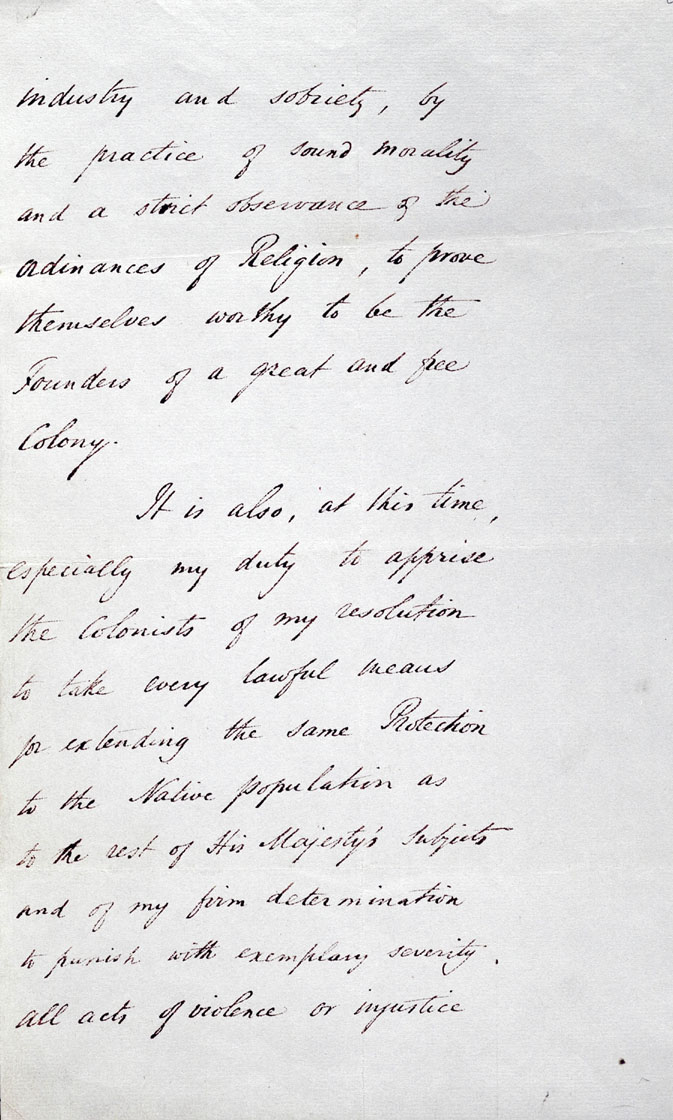 industry and sobriety, by
the practice of sound morality
and a strict observance of the
ordinances of Religion, to prove
themselves worthy to be the
Founders of a great and free
Colony.
It is also, at this time,
especially my duty to apprise
the Colonists of my resolution
to take every lawful means
for extending the same Protection
to the Native population as
to the rest of His Majesty's Subjects
and of my firm determination
to punish with exemplary severity,
all acts of violence or injustice